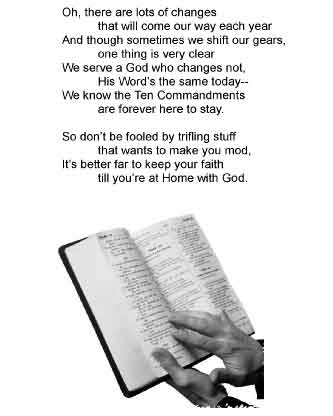 Oh, there are lots of changes
that will come our way each year
And though sometimes we shift our gears,
one thing is very clear
We serve a God who changes not,
His Word's the same today--
We know the Ten Commandments
are forever here to stay.
So don't be fooled by trifling stuff
that wants to make you mod,
It's better far to keep your faith
till you're at Home with God.